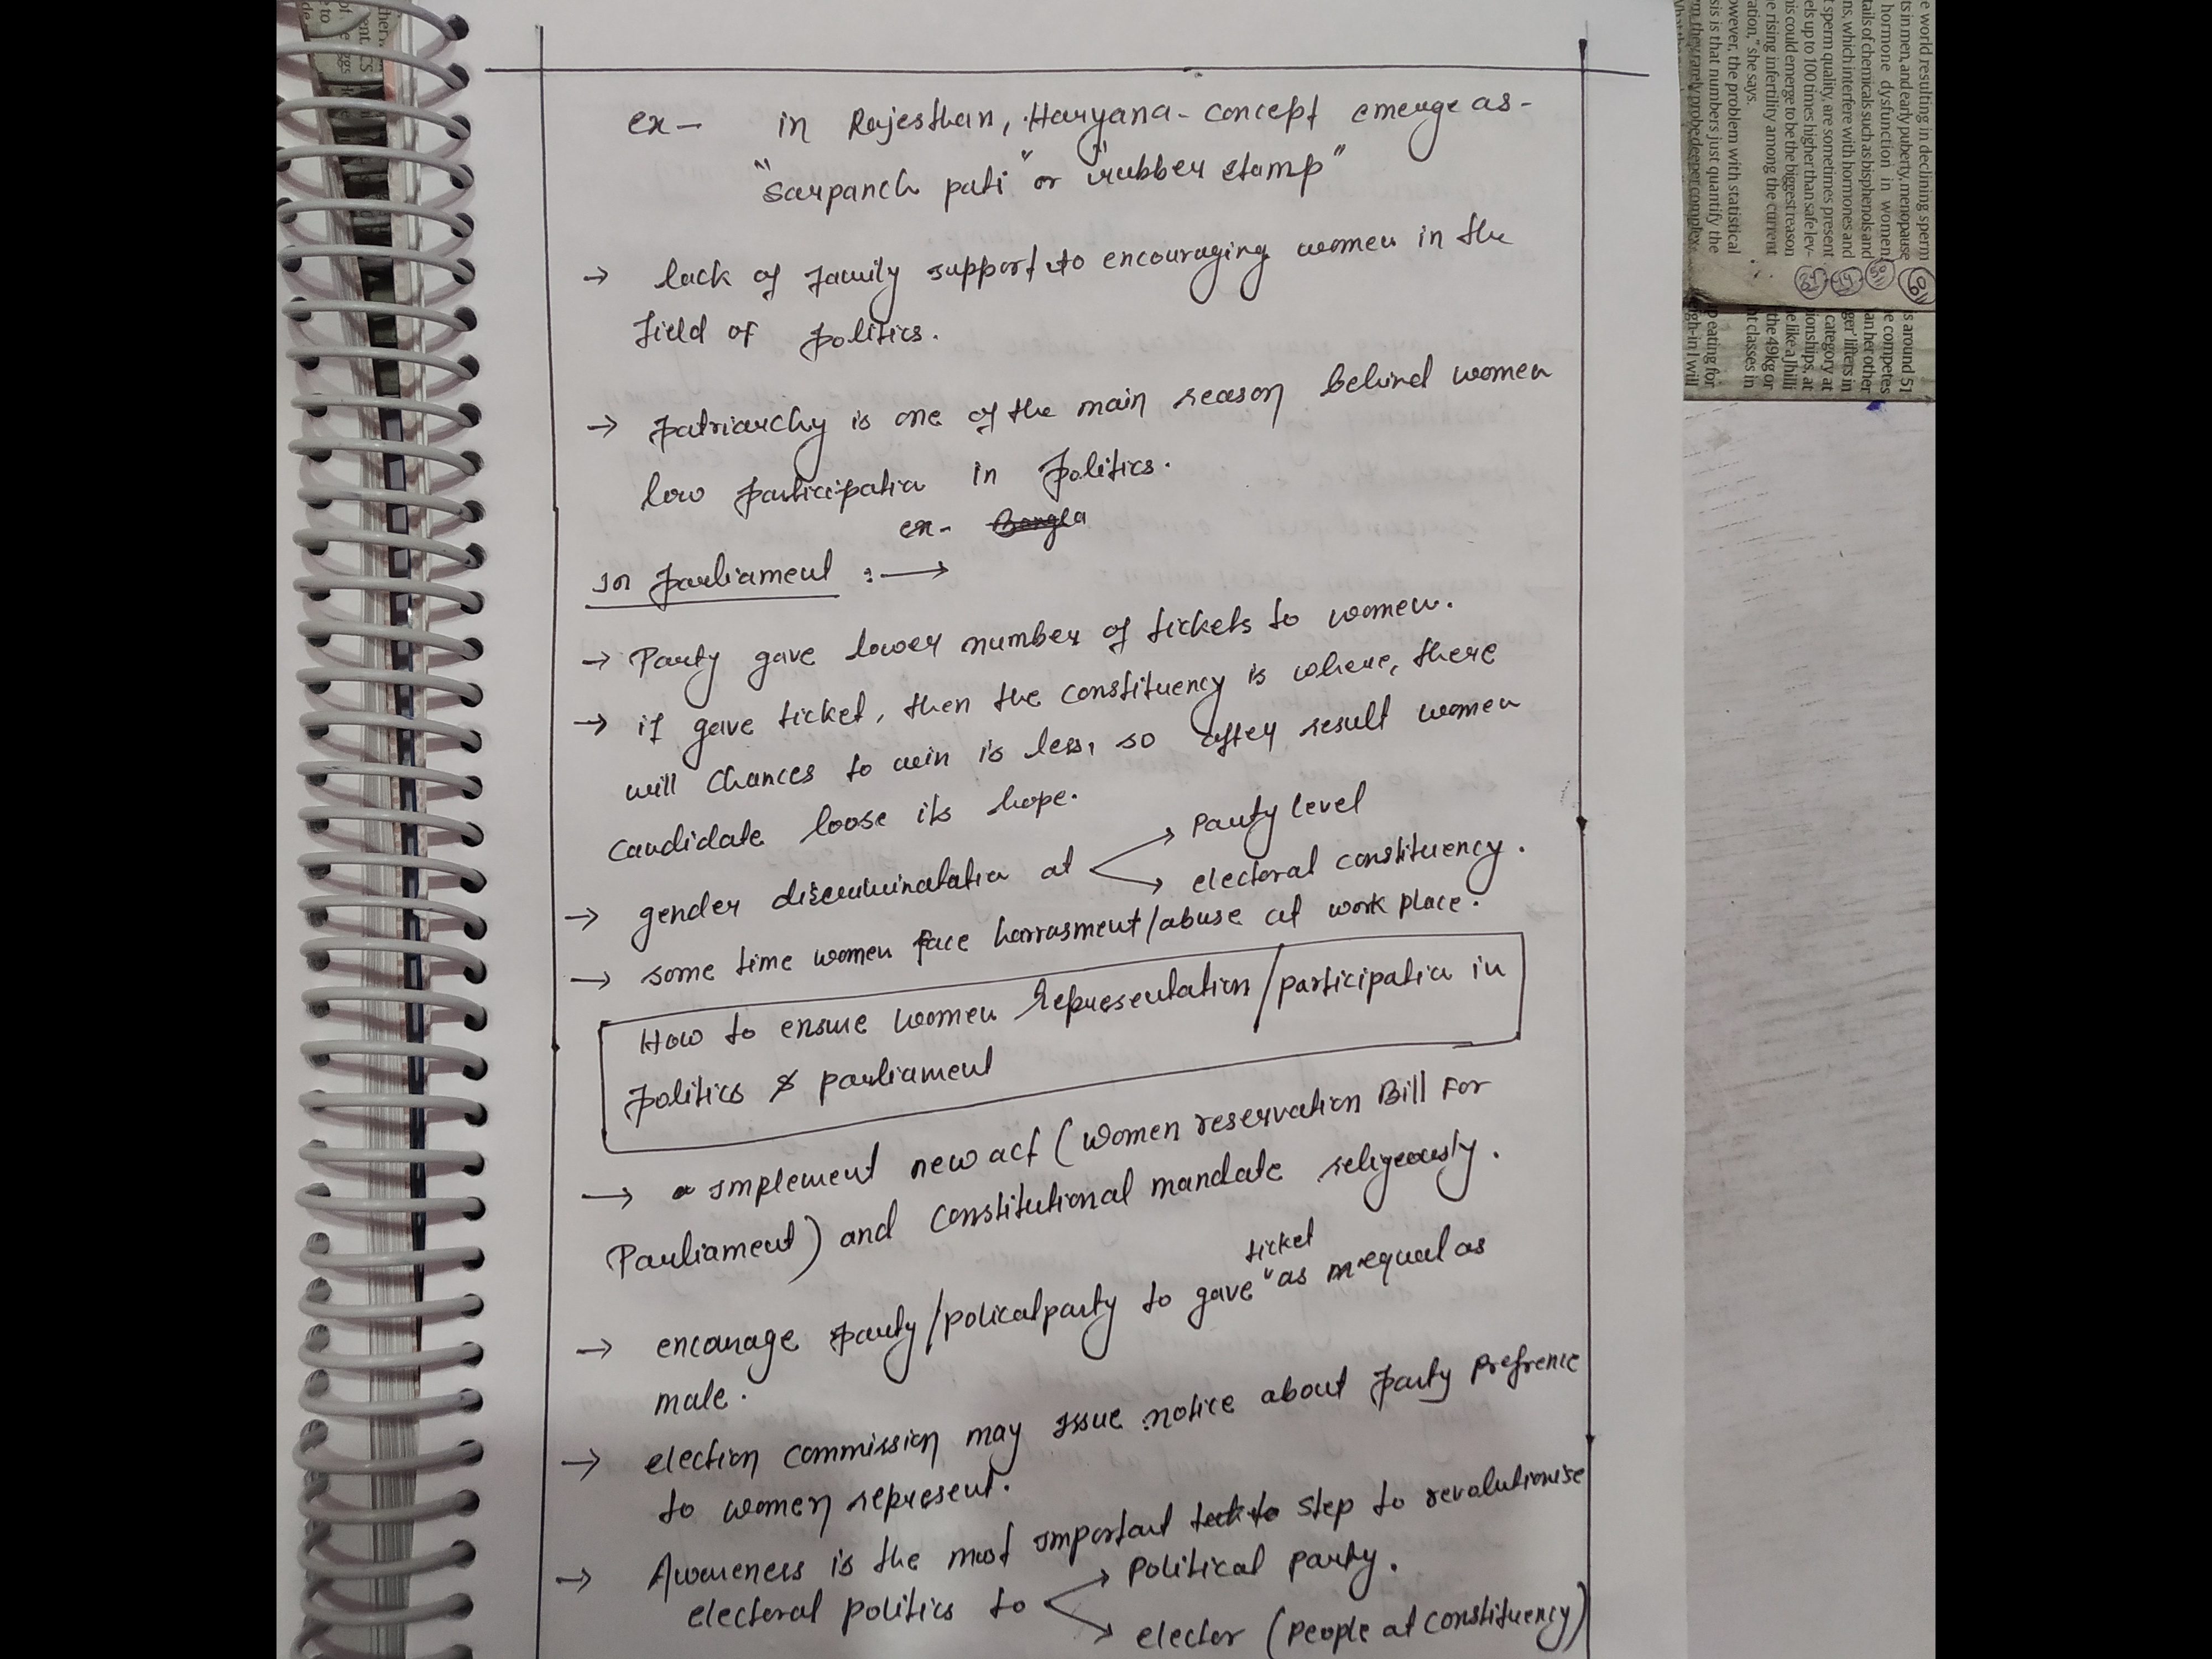 ex- in Rajesthan, Haryana - concept emerge as -
"sarpanch pati" or "rubber stamp"
→ lack of family support to encouraging women in the
field of politics.
→ patriarchy is one of the main reason behind women
low participation in politics.
ex- Bangla
In parliament :→
→ Party gave lower number of tickets to women.
→ if gave ticket, then the constituency is where, there
will chances to win is less, so after result women
candidate loose its hope.
→ gender discriminatation at
Party level
electoral constituency.
→ some time women face harrasment/abuse at work place.
How to ensure women representation/participation in
politics & parliament
→ Implement new act (women reservation Bill For
Parliament) and constitutional mandate religeously.
ticket
→ encourage party/polical party to gave as equal as
male.
→ election commission may issue notice about party prefrence
to women represent.
→ Awareness is the most important step to revolutionise
electoral politics to
Political party.
elector (People at constituency)
e world resulting in declining sperm
ts in men, and early puberty, menopause
hormone dysfunction in women,
tails of chemicals such as bisphenols and
ns, which interfere with hormones and
t sperm quality, are sometimes present
els up to 100 times higher than safe lev-
is could emerge to be the biggest reason
e rising infertility among the current
ation," she says.
owever, the problem with statistical
sis is that numbers just quantify the
they rarely probe deeper complex
s around 51
e competes
an her other
ger' lifters in
category at
pionships, at
e like a Jhilli
the 49kg or
ht classes in
eating for
gh-in I will